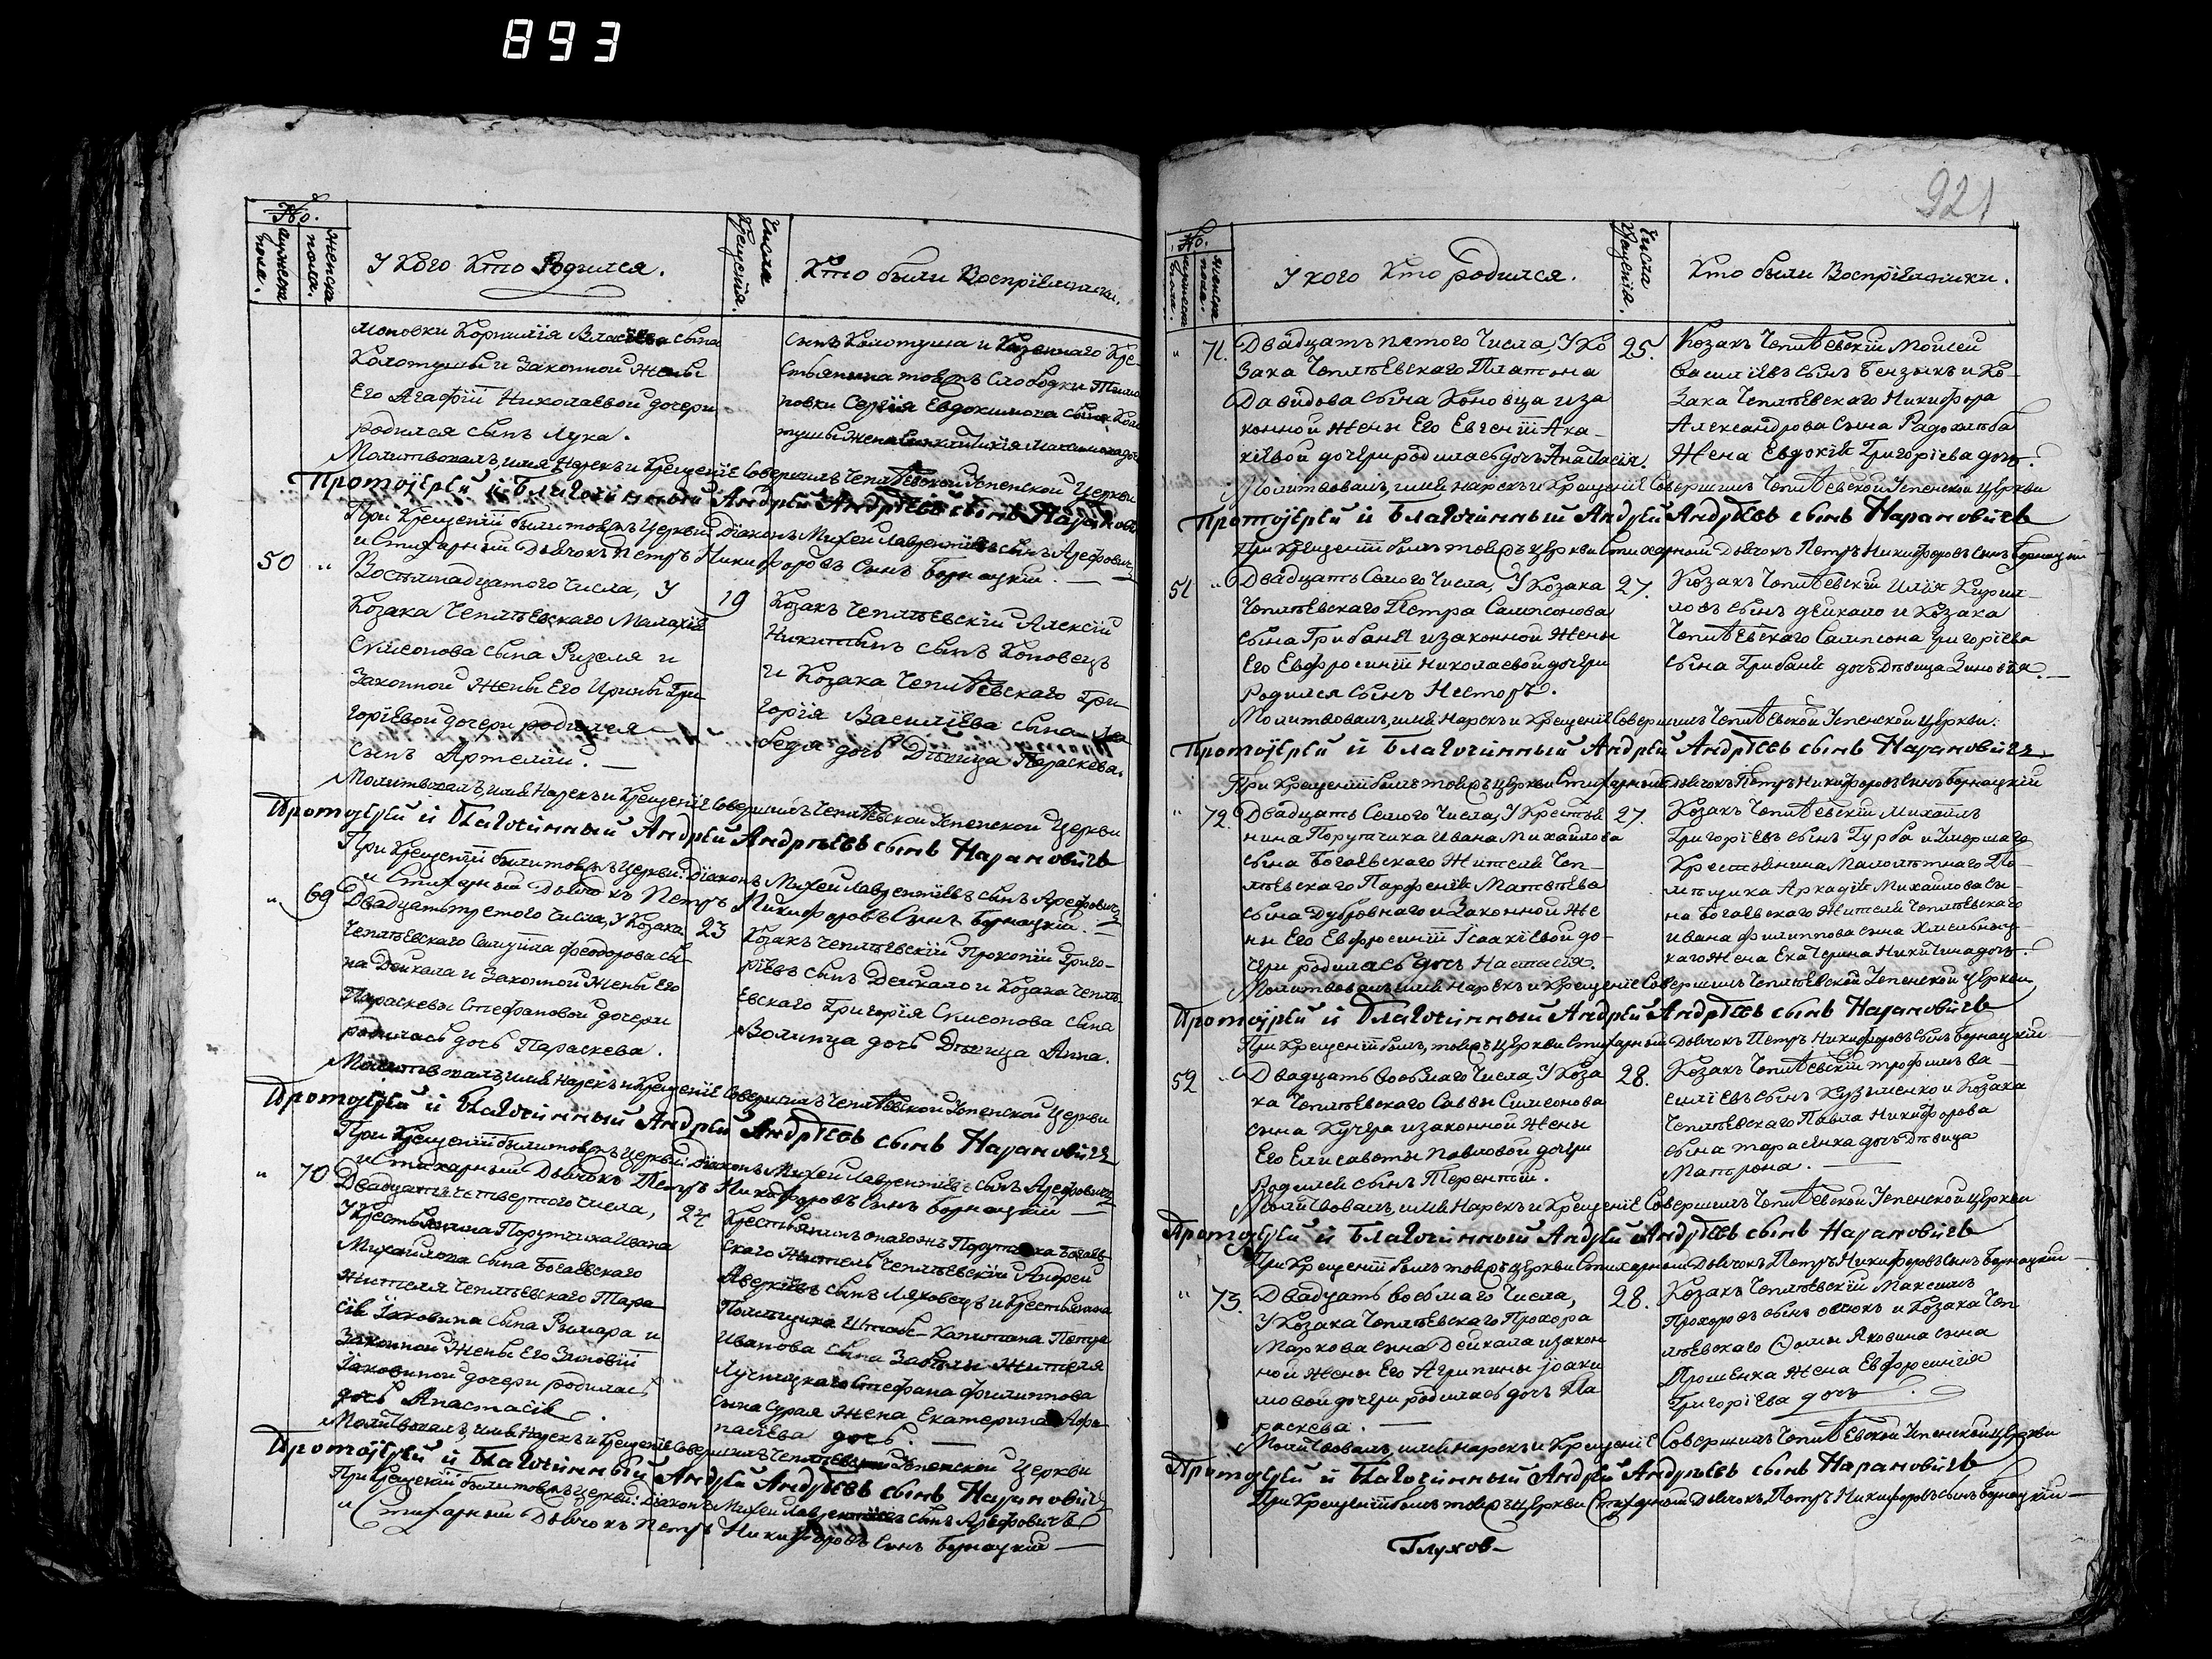 893
No.
мужеска пола.
женска пола.
У кого кто Родился.
Числа Крещенія.
Кто были Воспріемники.
моновки Корнилія Власіева сына
Колотуши и Законной жены
Его Агафіи Николаевой дочери
родился сынъ Лука.
сынъ Колотуша и Казеннаго Кре-
стьянина тоя жъ слободки
новки Сергія Евдокимова сына
Молитвовалъ, имя Нарекъ и Крещеніе Совершилъ Чеплѣевской Успенской Церкви
Протоіерей и Благочинный Андрей Андрѣевъ сынъ Нарановичъ
При Крещеніи были тояжъ Церкви: Діаконъ Михеи Лаврентіевъ сынъ Арефовичъ
и Стихарный Дьячокъ Петръ Никифоровъ Сынъ Борнацкій. —
50 "
Восемнадцатого Числа, У
Козака Чеплѣевскаго Малахія
Симеонова сына Ризеля и
Законной жены Его Ирины Гри
горіевой дочери родился
сынъ Артемій. —
19
Козакъ Чеплѣевскій Алексій
Никитинъ сынъ Коновецъ
и Козака Чеплѣевскаго Гри
горія Василіева сына
беда дочь Дѣвица Параскева.
Молитвовалъ, имя Нарекъ и Крещеніе Совершилъ Чеплѣевской Успенской Церкви
Протоіерей и Благочинный Андрей Андрѣевъ сынъ Нарановичъ
При Крещеніи были тояжъ Церкви: Діаконъ Михеи Лаврентіевъ сынъ Арефовичъ
и Стихарный Дьячокъ Петръ Никифоровъ Сынъ Борнацкій. —
" 69
Двадцать третого Числа, У Козака
Чеплѣевскаго Самуила Феодорова сы-
на Дейкала и Законной жены Его
Параскевы Стефановой дочери
родилась дочь Параскева.
23
Козакъ Чеплѣевскій Прокопій Григо-
ріевъ сынъ Дейкало и Козака Чеплѣ-
евскаго Григорія Симеонова сына
Волинца дочь Дѣвица Анна.
Молитвовалъ, имя Нарекъ и Крещеніе Совершилъ Чеплѣевской Успенской Церкви
Протоіерей и Благочинный Андрей Андрѣевъ сынъ Нарановичъ
При Крещеніи были тояжъ Церкви: Діаконъ Михеи Лаврентіевъ сынъ Арефовичъ
и Стихарный Дьячокъ Петръ Никифоровъ Сынъ Борнацкій —
" 70
Двадцать четвертого Числа,
У Крестьянина Порутчика Ивана
Михайлова сына Богаевскаго
жителя Чеплѣевскаго Тара
сія Іаковина сына Рымара и
Законной жены Его Зиновіи
Іаковиной дочери родилась
дочь Анастасія.
24
Крестьянинъ онагожъ Порутчика Богаев-
скаго житель Чеплѣевскій Андрей
Аверкіевъ сынъ Ляховецъ и Крестьянина
Помѣщика Штабс-Капитана Петра
Иванова сына Забѣлы жителя
Лучницкаго Стефана Филиппова
сына Сурая жена Екатерина Афа
насіева дочь. —
Молитвовалъ, имя Нарекъ и Крещеніе Совершилъ Чеплѣевской Успенской Церкви
Протоіерей и Благочинный Андрей Андрѣевъ сынъ Нарановичъ
При Крещеніи были тояжъ Церкви: Діаконъ Михеи Лаврентіевъ сынъ Арефовичъ
и Стихарный Дьячокъ Петръ Никифоровъ Сынъ Борнацкій —
921
No.
мужеска пола.
женска пола.
У кого кто родился.
Числа Крещенія.
Кто были Воспріемники.
" 71.
Двадцать пятого Числа, У Ко
зака Чеплѣевскаго Платона
Давидова сына Коновца и за
конной жены Его Евгеніи Ака-
кіевой дочери родилась дочь Анастасія.
25.
Козакъ Чеплѣевскій Моисей
Василіевъ сынъ Бензыкъ и Ко-
зака Чеплѣевскаго Никифора
Александрова сына Радохлѣба
жена Евдокія Григоріева дочь.
Молитвовалъ, имя нарекъ и Крещеніе Совершилъ Чеплѣевской Успенской Церкви
Протоіерей и Благочинный Андрей Андрѣевъ сынъ Нарановичъ
При Крещеніи былъ тояжъ Церкви Стихарный Дьячокъ Петръ Никифоровъ Сынъ Борнацкій
51 "
Двадцать Семого Числа, У Козака
Чеплѣевскаго Петра Сампсонова
сына Грибаня и законной жены
Его Евфросиніи Николаевой дочери
Родился сынъ Несторъ.
27.
Козакъ Чеплѣевскій Илія Кирил-
ловъ сынъ Дейкало и Козака
Чеплѣевскаго Сампсона Григоріева
сына Грибаня дочь Дѣвица Зиновія. —
Молитвовалъ, имя Нарекъ и Крещеніе Совершилъ Чеплѣевской Успенской Церкви:
Протоіерей и Благочинный Андрей Андрѣевъ сынъ Нарановичъ
При Крещеніи былъ тояжъ Церкви Стихарный Дьячокъ Петръ Никифоровъ Сынъ Борнацкій
" 72.
Двадцать Семого Числа, У Крестья
нина Порутчика Ивана Михайлова
сына Богаевскаго жителя Чеп-
лѣевскаго Парфенія Матвѣева
сына Дубровнаго и Законной же
ны Его Евфросиніи Ісаакіевой до-
чери родилась дочь Настасія.
27.
Козакъ Чеплѣевскій Михаилъ
Григоріевъ сынъ Гурба и умершаго
Крестьянина Малолѣтнаго По-
мѣщика Аркадія Михайлова сы-
на Богаевскаго жителя Чеплѣевскаго
Ивана Филиппова сына Хмельниц-
каго жена Екатерина Никитина дочь.
Молитвовалъ, имя Нарекъ и Крещеніе Совершилъ Чеплѣевской Успенской Церкви
Протоіерей и Благочинный Андрей Андрѣевъ сынъ Нарановичъ
При Крещеніи былъ тояжъ Церкви Стихарный Дьячокъ Петръ Никифоровъ Сынъ Борнацкій
52 "
Двадцать восьмаго Числа, У Коза
ка Чеплѣевскаго Саввы Симеонова
сына Кучера и законной жены
Его Елисаветы Павловой дочери
Родился сынъ Терентій.
28.
Козакъ Чеплѣевскій Трофимъ Ва-
силіевъ сынъ Кузьменко и Козака
Чеплѣевскаго Павла Никифорова
сына Тарасенка дочь Дѣвица
Матрона. —
Молитвовалъ, имя Нарекъ и Крещеніе Совершилъ Чеплѣевской Успенской Церкви
Протоіерей и Благочинный Андрей Андрѣевъ сынъ Нарановичъ
При Крещеніи былъ тояжъ Церкви Стихарный Дьячокъ Петръ Никифоровъ Сынъ Борнацкій —
" 73.
Двадцать восьмаго Числа,
У Козака Чеплѣевскаго Прохора
Маркова сына Дейкала и закон
ной жены Его Агрипины Іоаки
мовой дочери родилась дочь Па
раскева. —
28.
Козакъ Чеплѣевскій Максимъ
Прохоровъ сынъ и Козака Чеп
лѣевскаго Фомы Яковина сына
Прошенка жена Евфросинія
Григоріева дочь.
Молитвовалъ, имя нарекъ и Крещеніе Совершилъ Чеплѣевской Успенской Церкви
Протоіерей и Благочинный Андрей Андрѣевъ сынъ Нарановичъ
При Крещеніи былъ тояжъ Церкви Стихарный Дьячокъ Петръ Никифоровъ сынъ Борнацкій —
Глухов-